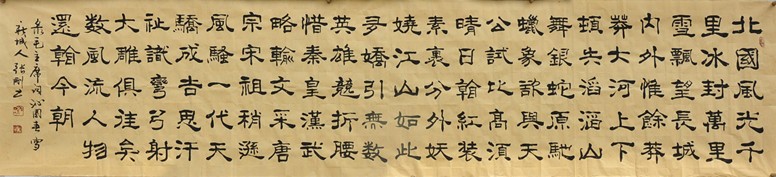 北國風光千
里冰封萬里
雪飄望長城
內外惟餘莽
莽大河上下
頓失滔滔山
舞銀蛇原馳
蠟象欲與天
公試比高須
晴日看紅裝
素裹分外妖
嬈江山如此
多嬌引無數
英雄競折腰
惜秦皇漢武
略輸文采唐
宗宋祖稍遜
風騷一代天
驕成吉思汗
祗識彎弓射
大雕俱往矣
數風流人物
還看今朝
毛主席詞沁園春雪
城人張